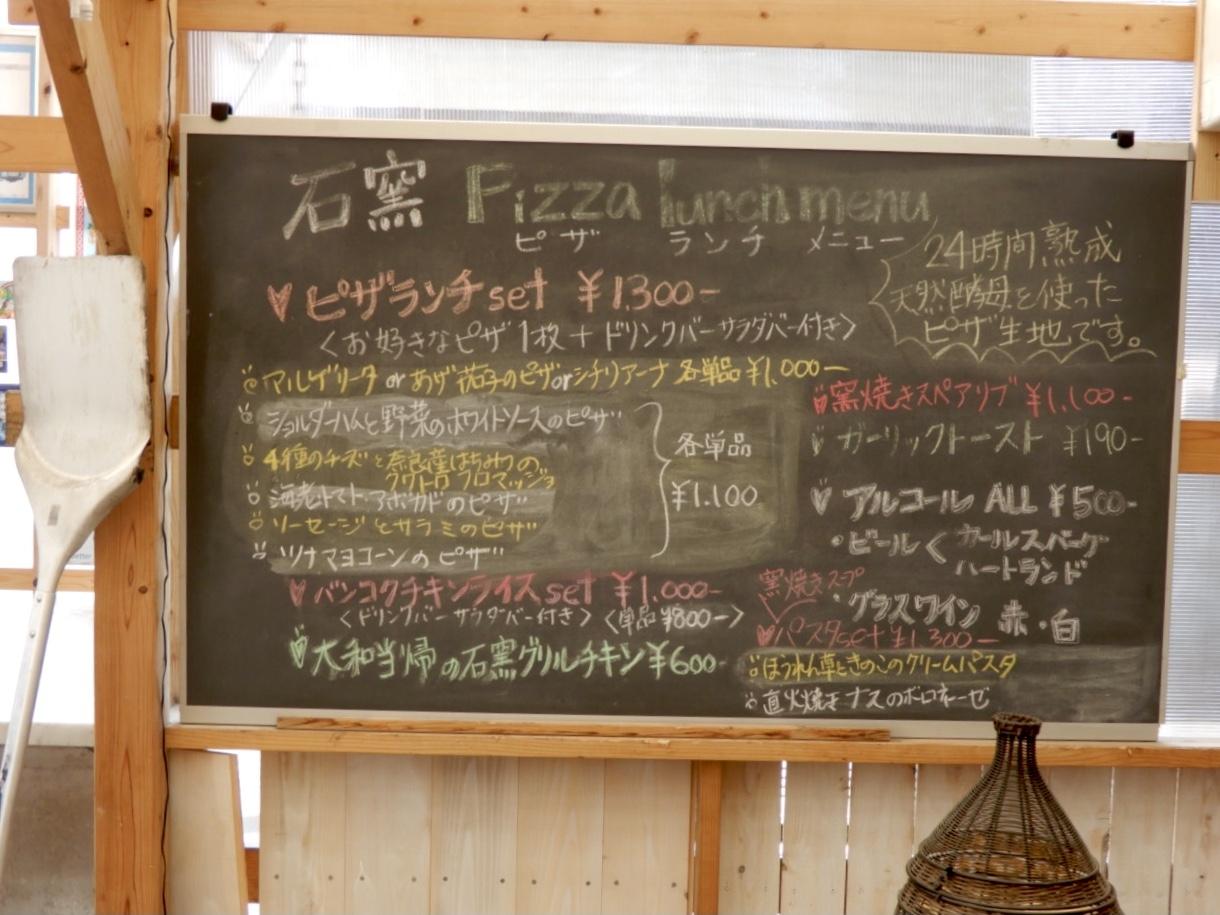 石窯 Pizza lunch menu
ピザ ランチ メニュー
24時間熟成
天然酵母を使った
ピザ生地です。
ピザランチset ¥1.300-
<お好きなピザ1枚+ドリンクバーサラダバー付き>
マルゲリータ or あげ茄子のピザorシチリアーナ 各単品¥1.000-
ショルダーハムと野菜のホワイトソースのピザ
4種のチーズと奈良産はちみつの
クワトロフロマッジョ
海老・トマト・アボカドのピザ
ソーセージとサラミのピザ
ツナマヨコーンのピザ
各単品
¥1.100
バンコクチキンライスset ¥1.000-
<ドリンクバーサラダバー付き> <単品¥800->
大和当帰の石窯グリルチキン¥600-
窯焼きスペアリブ ¥1,100-
ガーリックトースト ¥190-
アルコール ALL ¥500-
・ビール< カールスバーグ
ハートランド
・グラスワイン 赤・白
窯焼きスープ
パスタset ¥1.300-
ほうれん草ときのこのクリームパスタ
直火焼きナスのボロネーゼ